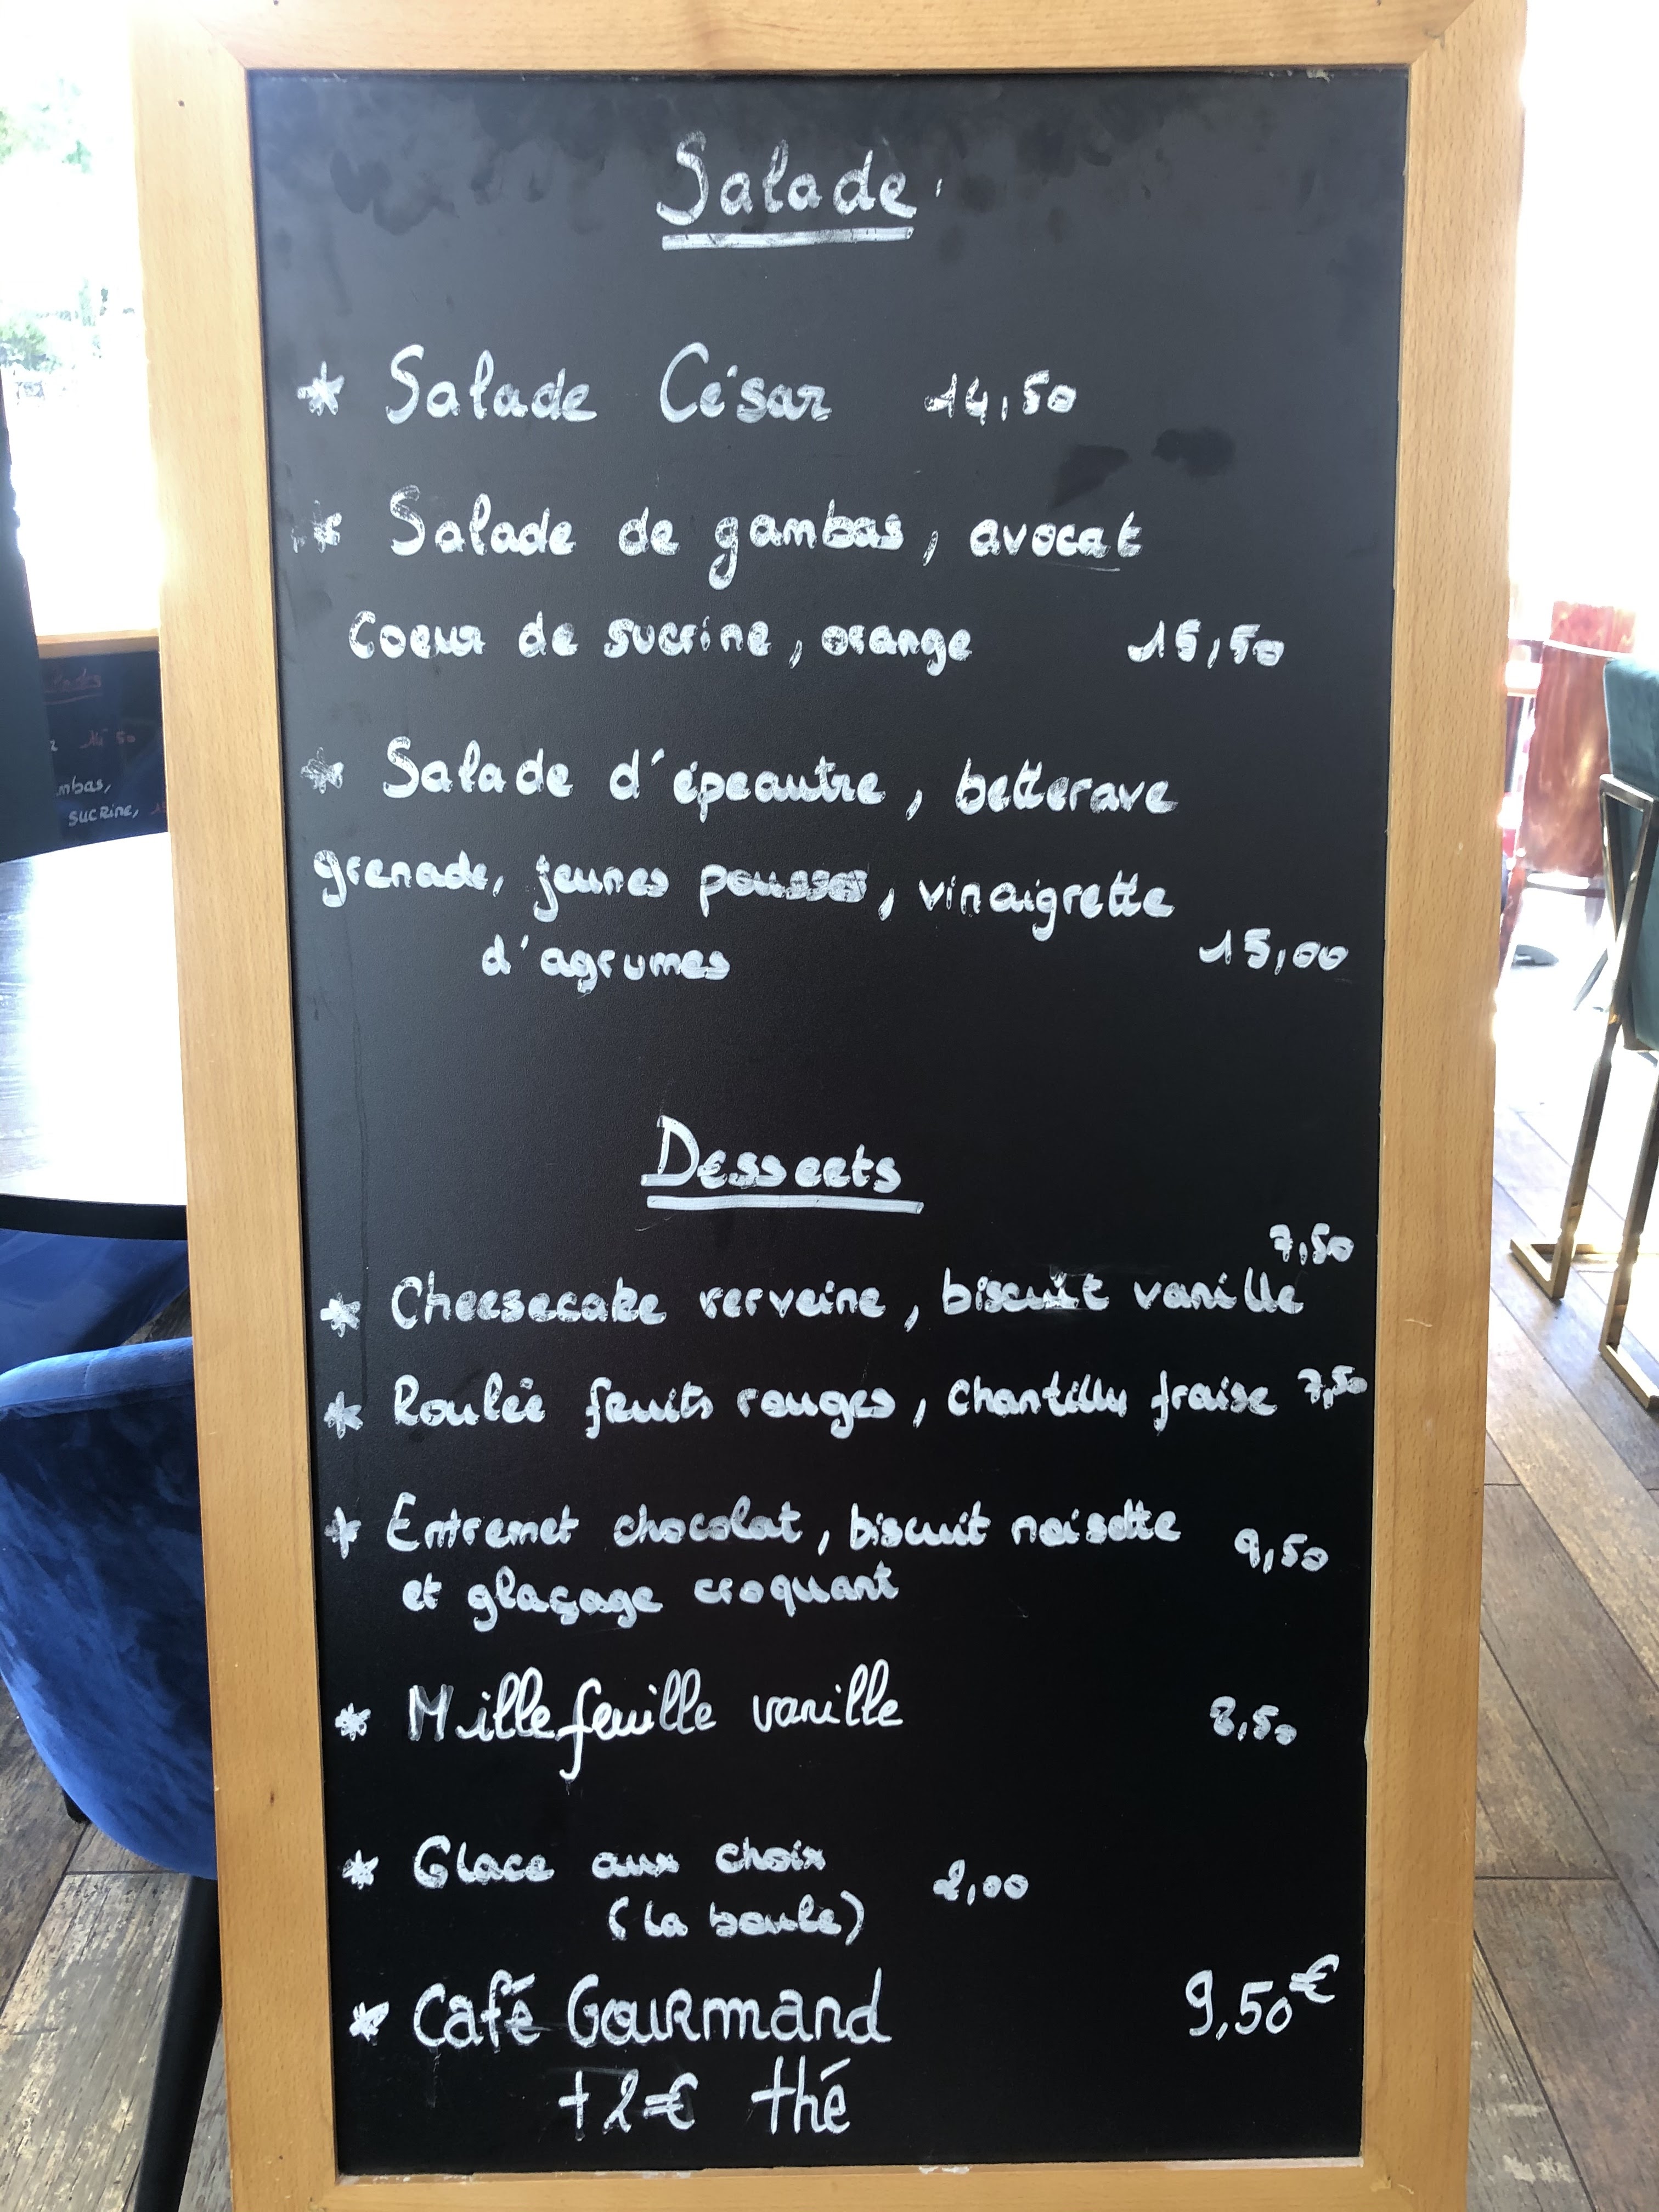 Salade
* Salade César 14,50
* Salade de gambas, avocat
Coeur de sucrine, orange 15,50
* Salade d'épeautre, betterave
grenade, jeunes pousses, vinaigrette
d'agrumes 15,00
Desserts
7,50
* Cheesecake verveine, biscuit vanille
* Roulée fruits rouges, chantilly fraise 7,50
* Entremet chocolat, biscuit noisette 9,50
et glaçage croquant
* Millefeuille vanille 8,50
* Glace aux choix 2,00
(la boule)
* Café Gourmand 9,50€
+2€ thé
mbas,
sucrine,